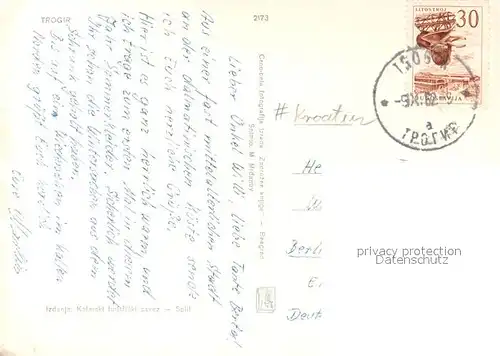 TROGIR
2173
Lieber Onkel Willi, liebe Tante
Aus einer fast mittelalterlichen Stadt
an der dalmatinischen Küste sende
ich Euch herzliche Grüße.
Hier ist es ganz herrlich warm und
ich trage zum ersten Mal in diesem
Jahr Sommerkleider. Sicherlich werdet
Ihr schon die Winterwesen aus dem
Schrank geholt haben.
Bis auf ein Wiedersehen im kalten
Norden grüßt Euch herzlich
Eure
Izdanje: Kotarski turistički savez — Split
Beograd
# Kroatien
30
JUGOSLAVIJA
TROGIR
-9.X.62
a
ТРОГИР
He
W
Berlin
E
Deut
privacy protection
watermark